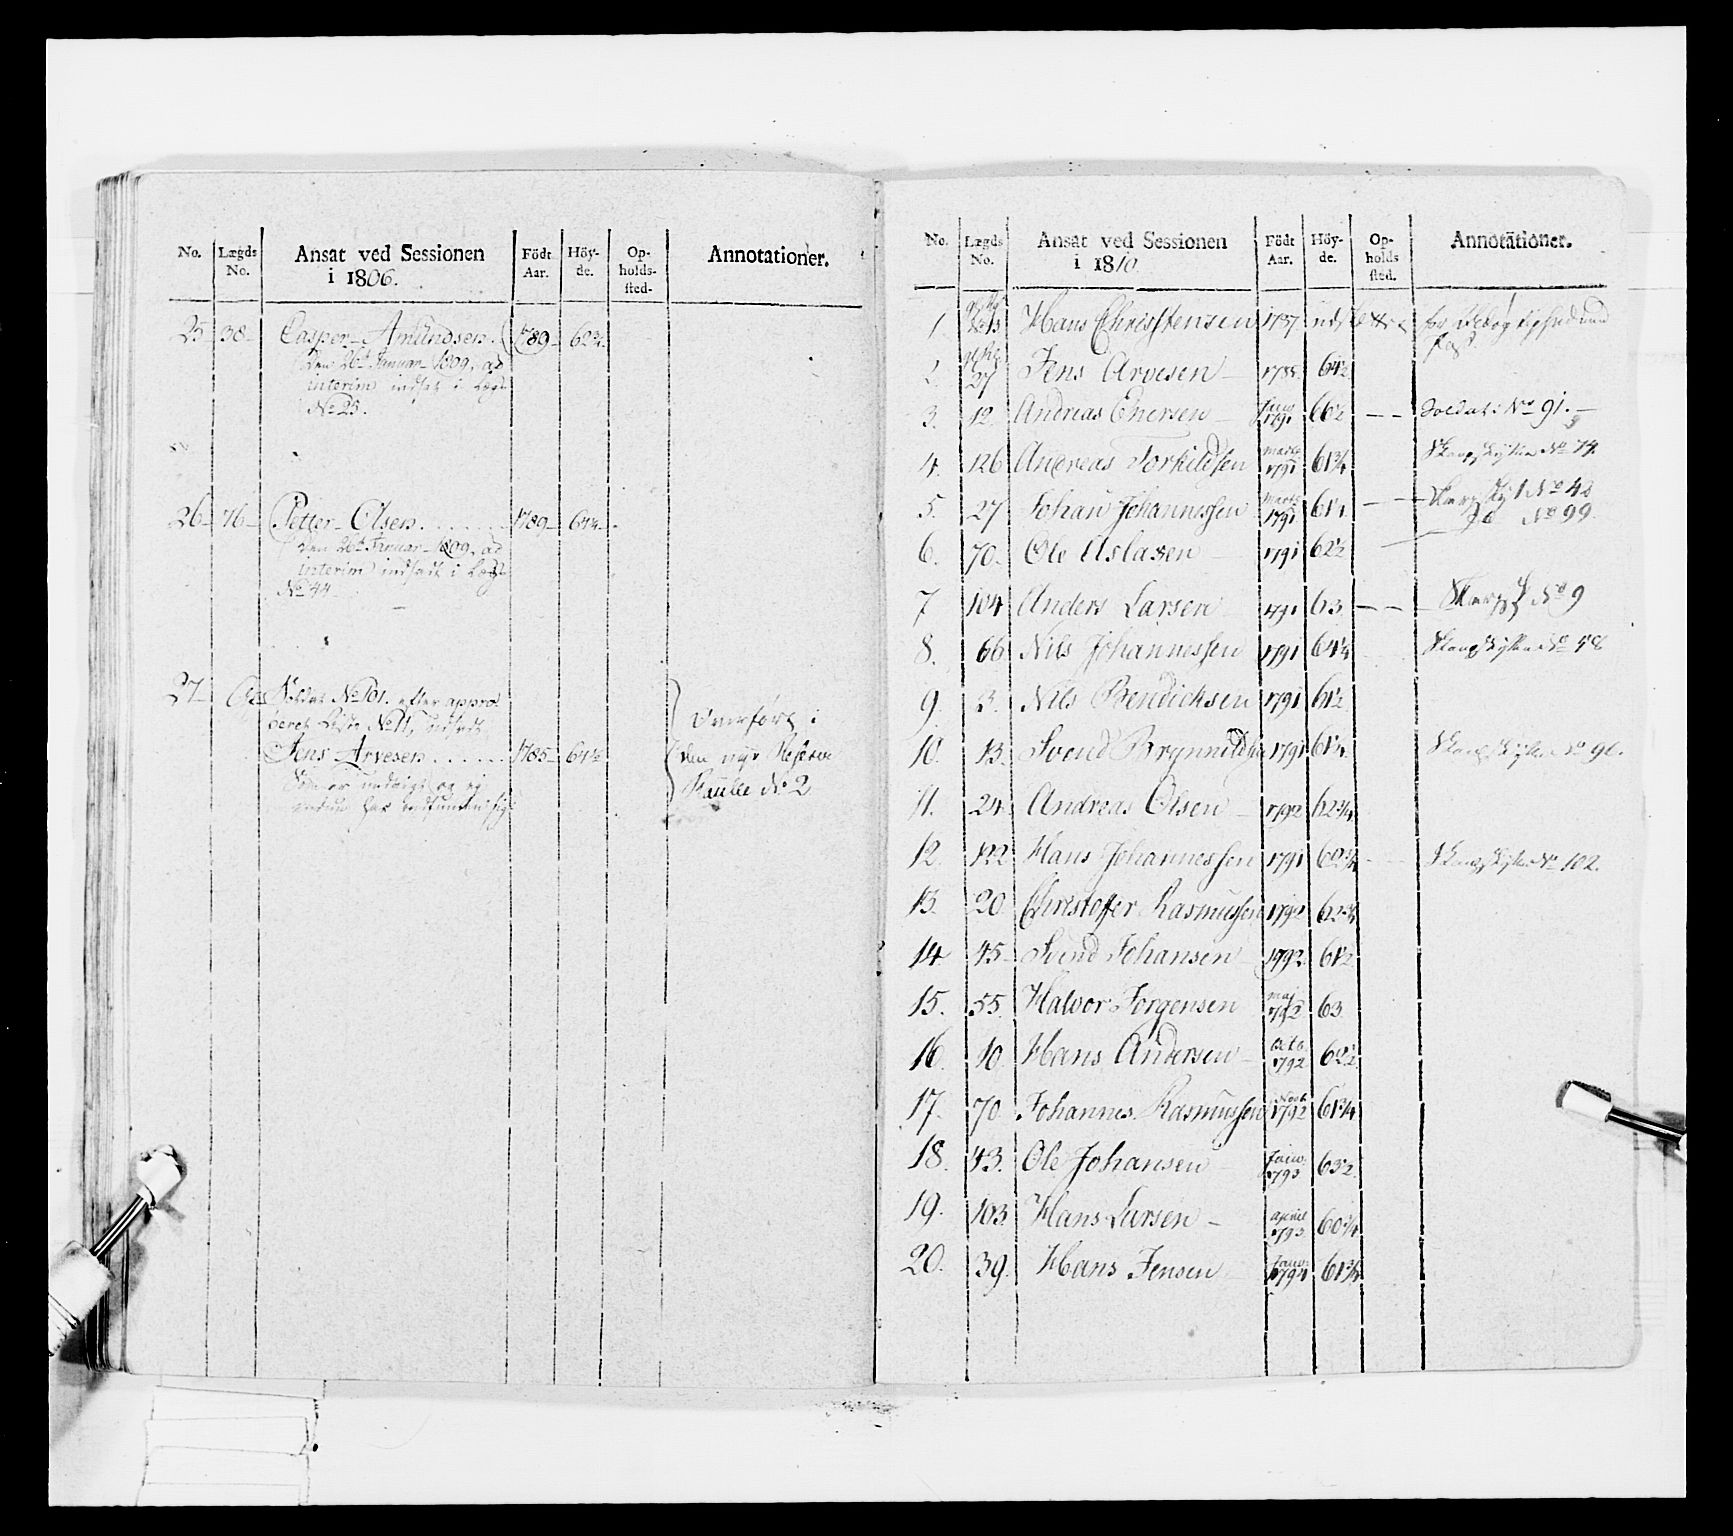 No. Lægds No. Ansat ved Sessionen i 1806. Födt Aar. Höyde. Opholdssted. Annotationer.
25 38 Casper Amundsen. 1789 62¾
Den 26de Januar 1809, ad
interim indsat i Lægd
No 25.
26 76 Petter Olsen. 1789 64¼
Den 26de Januar 1809, ad
interim indsadt i Lægd
No 44
27 No 101. efter appro-
beret Liste No 11, indsadt
Jens Arvesen 1785 64½
Som er og ej
har sig
Overført i
den nye Reserve
Rulle No 2
No. Lægds No. Ansat ved Sessionen i 1810 Födt Aar. Höyde. Opholdssted. Annotationer.
1. Hans Christensen 1787
2. 27 Jens Arvesen 1785 64½
3. 12 Andreas Enersen Janv 1791 66½ Soldat No 91.
4. 126 Andreas Torkildsen Marts 1791 61¾ Skarpskytter No 74
5. 27 Johan Johannessen Marts 1791 61¼ Skarpsky No 42
No 99
6. 70. Ole Aslaxen 1791 62½
7 104 Anders Larsen 1791 63 Skarpsk No 9
8. 66 Nils Johannessen 1791 64¼ Skarpskytter No 58
9. 3. Nils Bendicksen 1791 61½
10. 13. Svend Brynnildsen 1791 61¼ Skarpskytter No 96.
11. 24. Andreas Olsen 1792 62¾
12. 122 Hans Johannessen 1791 60¾ Skarpskytter No 102.
13. 20 Christoffer Rasmussen 1792 62¾
14. 45 Svend Johansen 1792 61½
15. 55. Halvor Jorgensen maj 1792 63
16. 10 Hans Andersen Octb 1792 62½
17. 70 Johannes Rasmussen Novb 1792 61¾
18. 43. Ole Johansen Janv. 1793 63½
19. 103 Hans Larsen April 1793 60¾
20. 39. Hans Jensen Janv. 1794 61¾